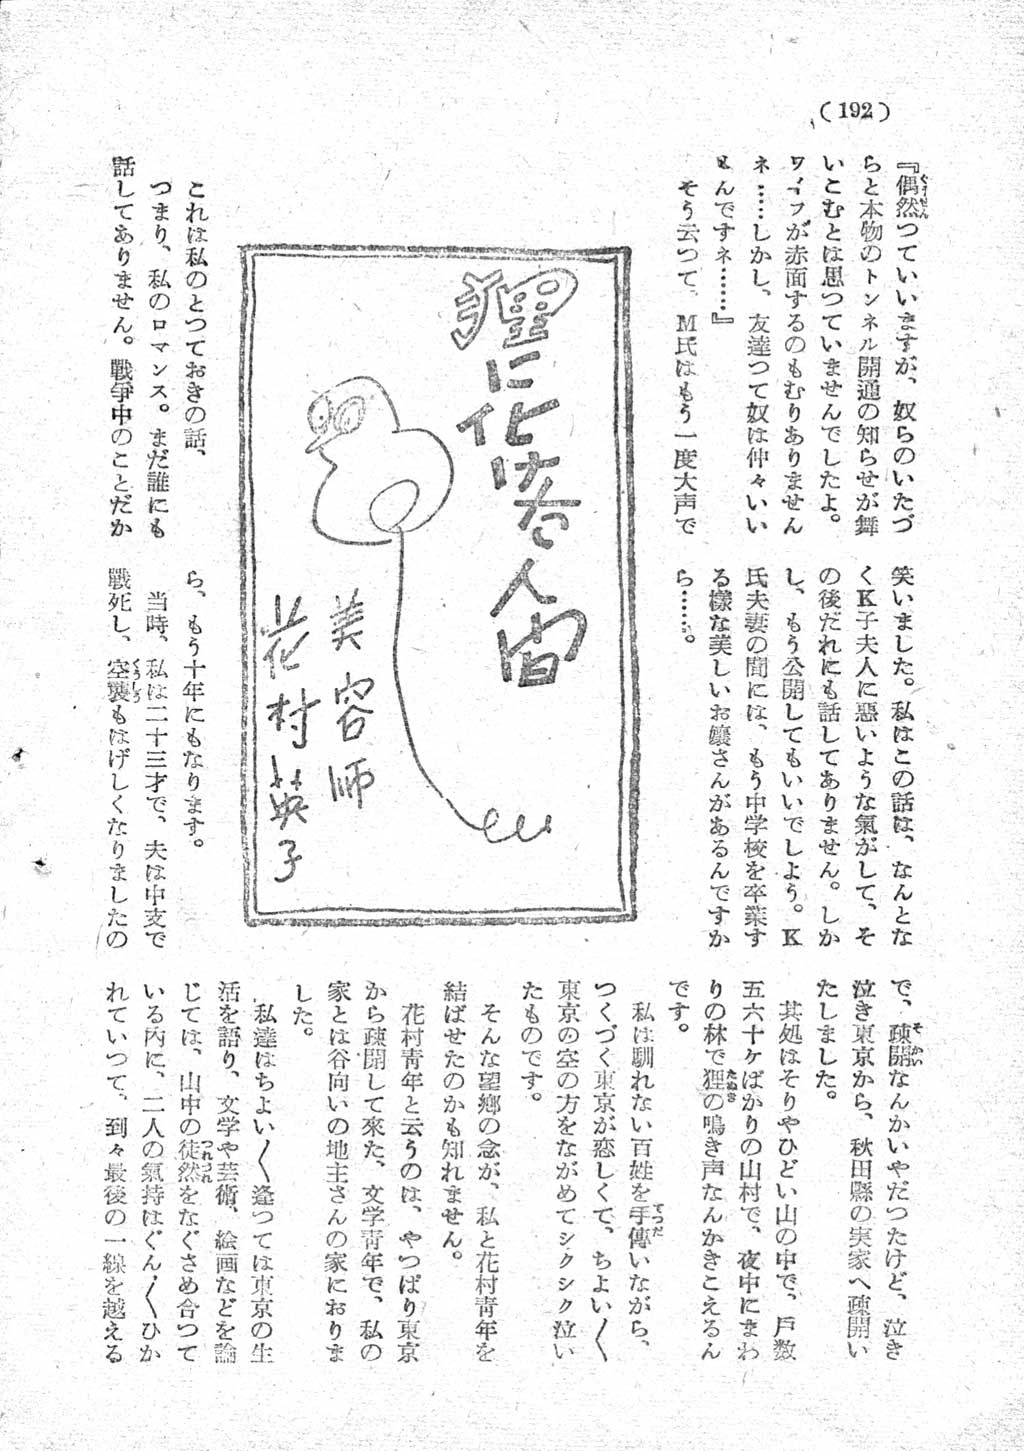 (192)
『偶然つていいますが、奴らのいたづ
らと本物のトンネル開通の知らせが舞
いこむとは思つていませんでしたよ。
ワイフが赤面するのもむりありません
ネ……しかし、友達つて奴は仲々いい
もんですネ……』
そう云つて、M氏はもう一度大声で
笑いました。私はこの話は、なんとな
くK子夫人に悪いような氣がして、そ
の後だれにも話してありません。しか
し、もう公開してもいいでしよう。K
氏夫妻の間には、もう中学校を卒業す
る樣な美しいお孃さんがあるんですか
ら……。
狸に化けた人間
美容師
花村英子
これは私のとつておきの話、
つまり、私のロマンス。まだ誰にも
話してありません。戰爭中のことだか
ら、もう十年にもなります。
当時、私は二十三才で、夫は中支で
戰死し、空襲もはげしくなりましたの
で、疎開なんかいやだつたけど、泣き
泣き東京から、秋田縣の実家へ疎開い
たしました。
其処はそりやひどい山の中で、戸数
五六十ケばかりの山村で、夜中にまわ
りの林で狸の鳴き声なんかきこえるん
です。
私は馴れない百姓を手傳いながら、
つくづく東京が恋しくて、ちよい〱
東京の空の方をながめてシクシク泣い
たものです。
そんな望郷の念が、私と花村靑年を
結ばせたのかも知れません。
花村靑年と云うのは、やつぱり東京
から疎開して來た、文学靑年で、私の
家とは谷向いの地主さんの家におりま
した。
私達はちよい〱逢つては東京の生
活を語り、文学や芸術、絵画などを論
じては、山中の徒然をなぐさめ合つて
いる内に、二人の氣持はぐん〱ひか
れていつて、到々最後の一線を越える